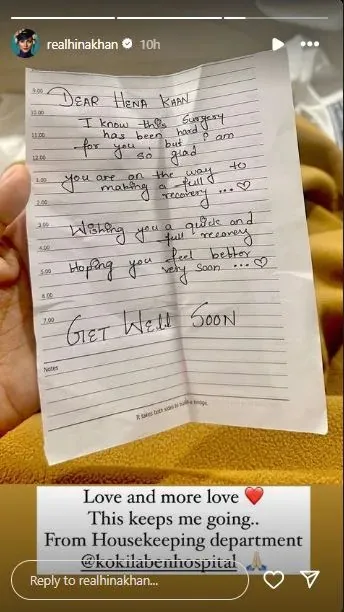 realhinakhan 10h
9.00
DEAR HENA KHAN
10.00
I know this surgery
11.00
has been hard
for you, but i am
12.00
so glad
1.00
you are on the way to
making a full
2.00
recovery ...♡
3.00
Wishing you a quick and
4.00
full recovery
5.00
Hoping you feel better
very soon ...♡
6.00
7.00
GET WELL SOON
Notes
It takes both sides to build a bridge.
Love and more love ❤️
This keeps me going..
From Housekeeping department
@kokilabenhospital 🙏🏻
Reply to realhinakhan...